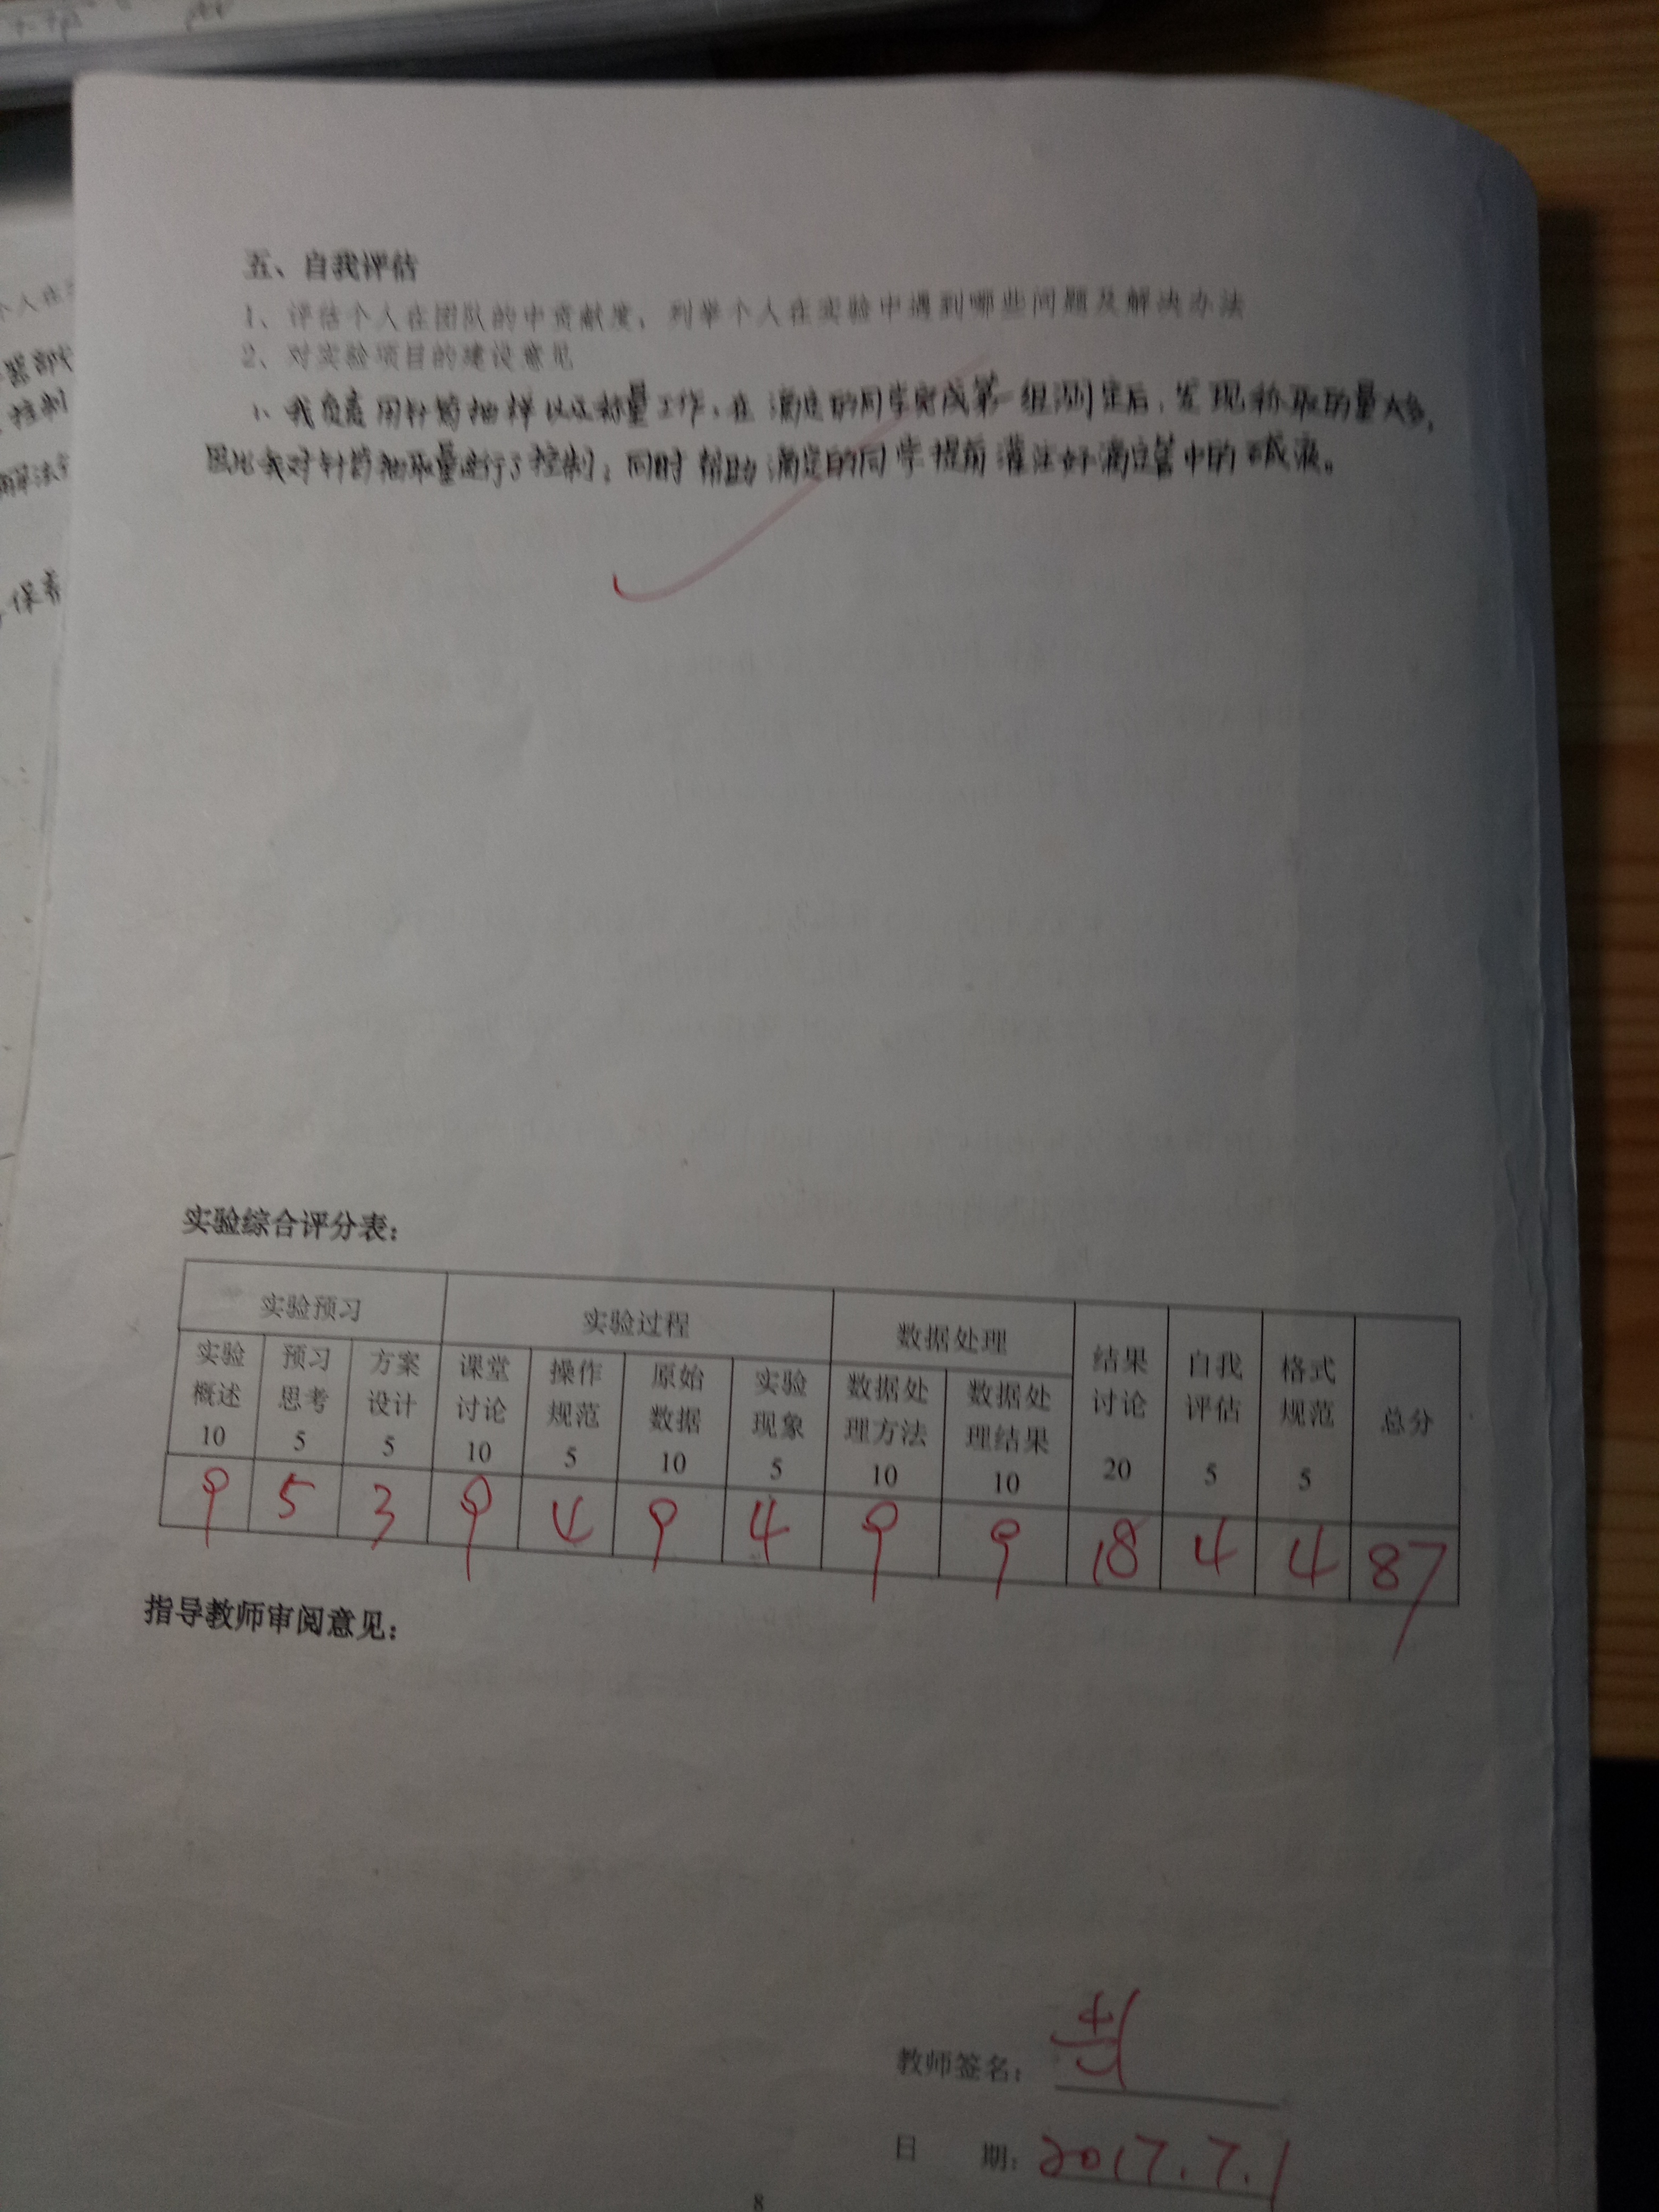 五、自我评估
1、评估个人在团队的中贡献度，列举个人在实验中遇到哪些问题及解决办法
2、对实验项目的建设意见
1、我负责用针筒抽样以及称量工作，在滴定的同学完成第一组测定后，发现称取的量太多，
因此我对针筒抽取量进行了控制；同时帮助滴定的同学提前灌注好滴定管中的碱液。
个人在
器部
控制
保养
实验综合评分表：
实验预习 实验过程 数据处理 结果讨论 20 自我评估 5 格式规范 5 总分
实验概述 10 预习思考 5 方案设计 5 课堂讨论 10 操作规范 5 原始数据 10 实验现象 5 数据处理方法 10 数据处理结果 10
9 5 3 9 4 9 4 9 9 18 4 4 87
指导教师审阅意见：
教师签名：
日 期：2017.7.1
8